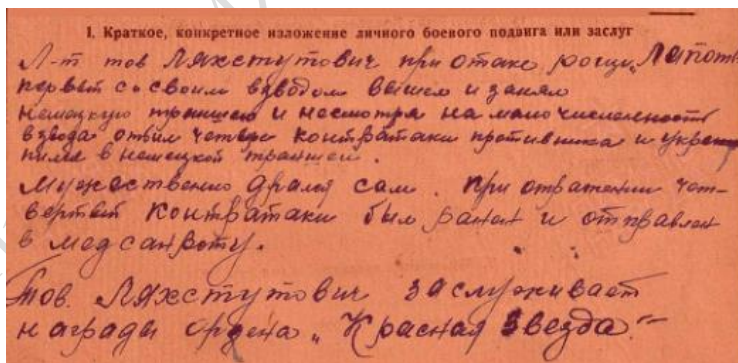 I. Краткое, конкретное изложение личного боевого подвига или заслуг
Л-т тов Ляхстутович при отаке рощи „Лапоть
первый со своим взводом вышел и занял
немецкую траншею и несмотря на малочисленность
взвода отбил четыре контратаки противника и укреп
пился в немецкой траншеи.
Мужественно дрался сам. При отражении чет-
вертой контратаки был ранен и отправлен
в медсанроту.
Тов. Ляхстутович заслуживает
награды ордена „Красная звезда"